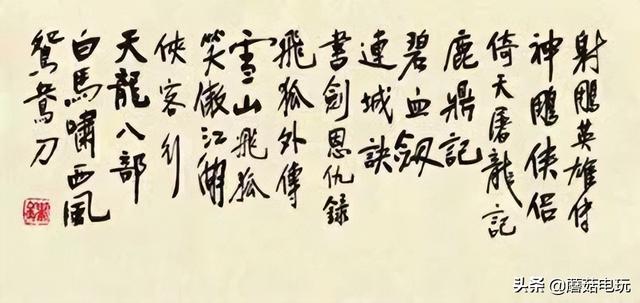 射鵰英雄传
神鵰侠侣
倚天屠龍記
鹿鼎記
碧血劍
連城訣
書劍恩仇錄
飛狐外傳
雪山飛狐
笑傲江湖
俠客行
天龍八部
白馬嘯西風
鴛鴦刀
头条 @蘑菇电玩